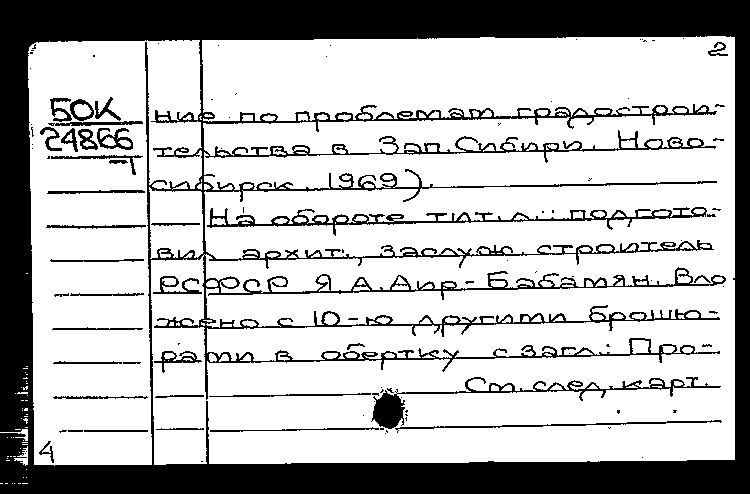 2
БОК
24866
-1
ние по проблемам градострои-
тельства в Зап. Сибири. Ново-
сибирск. 1969).
На обороте тит. л.: подгото-
вил архит., заслуж. строитель
РСФСР Я.А. Аир-Бабамян. Вло-
жено с 10-ю другими брошю-
рами в обертку с загл.: Про-
См. след. карт.
4